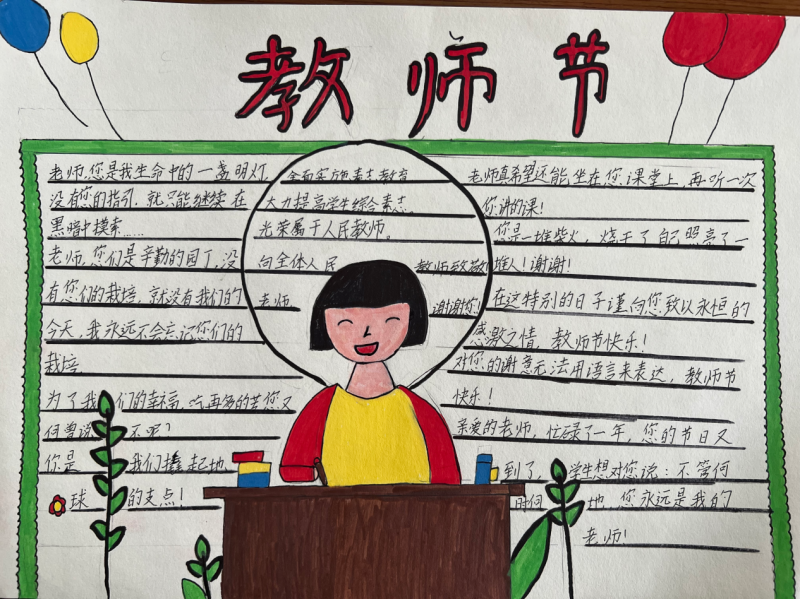 教师节
老师,您是我生命中的一盏明灯,
没有您的指引,就只能继续在
黑暗中摸索……
老师,您们是辛勤的园丁,没
有您们的栽培,就没有我们的
今天,我永远不会忘记您们的
栽培.
为了我们的幸福,吃再多的苦您又
何曾说 不呢?
你是 我们撞起地
球 的支点!
全面实施素志教育
大力提高学生综合素志。
光荣属于人民教师。
向全体人民 教师致敬!
老师 谢谢您!
老师真希望还能坐在您课堂上,再听一次
你讲的课!
您是一堆柴火,烧干了自己照亮了一
堆人!谢谢!
在这特别的日子谨向您致以永恒的
感激之情,教师节快乐!
对您的谢意无法用语言来表达,教师节
快乐!
亲爱的老师,忙碌了一年,您的节日又
到了,学生想对您说:不管何
时何 地,您永远是我的
老师!